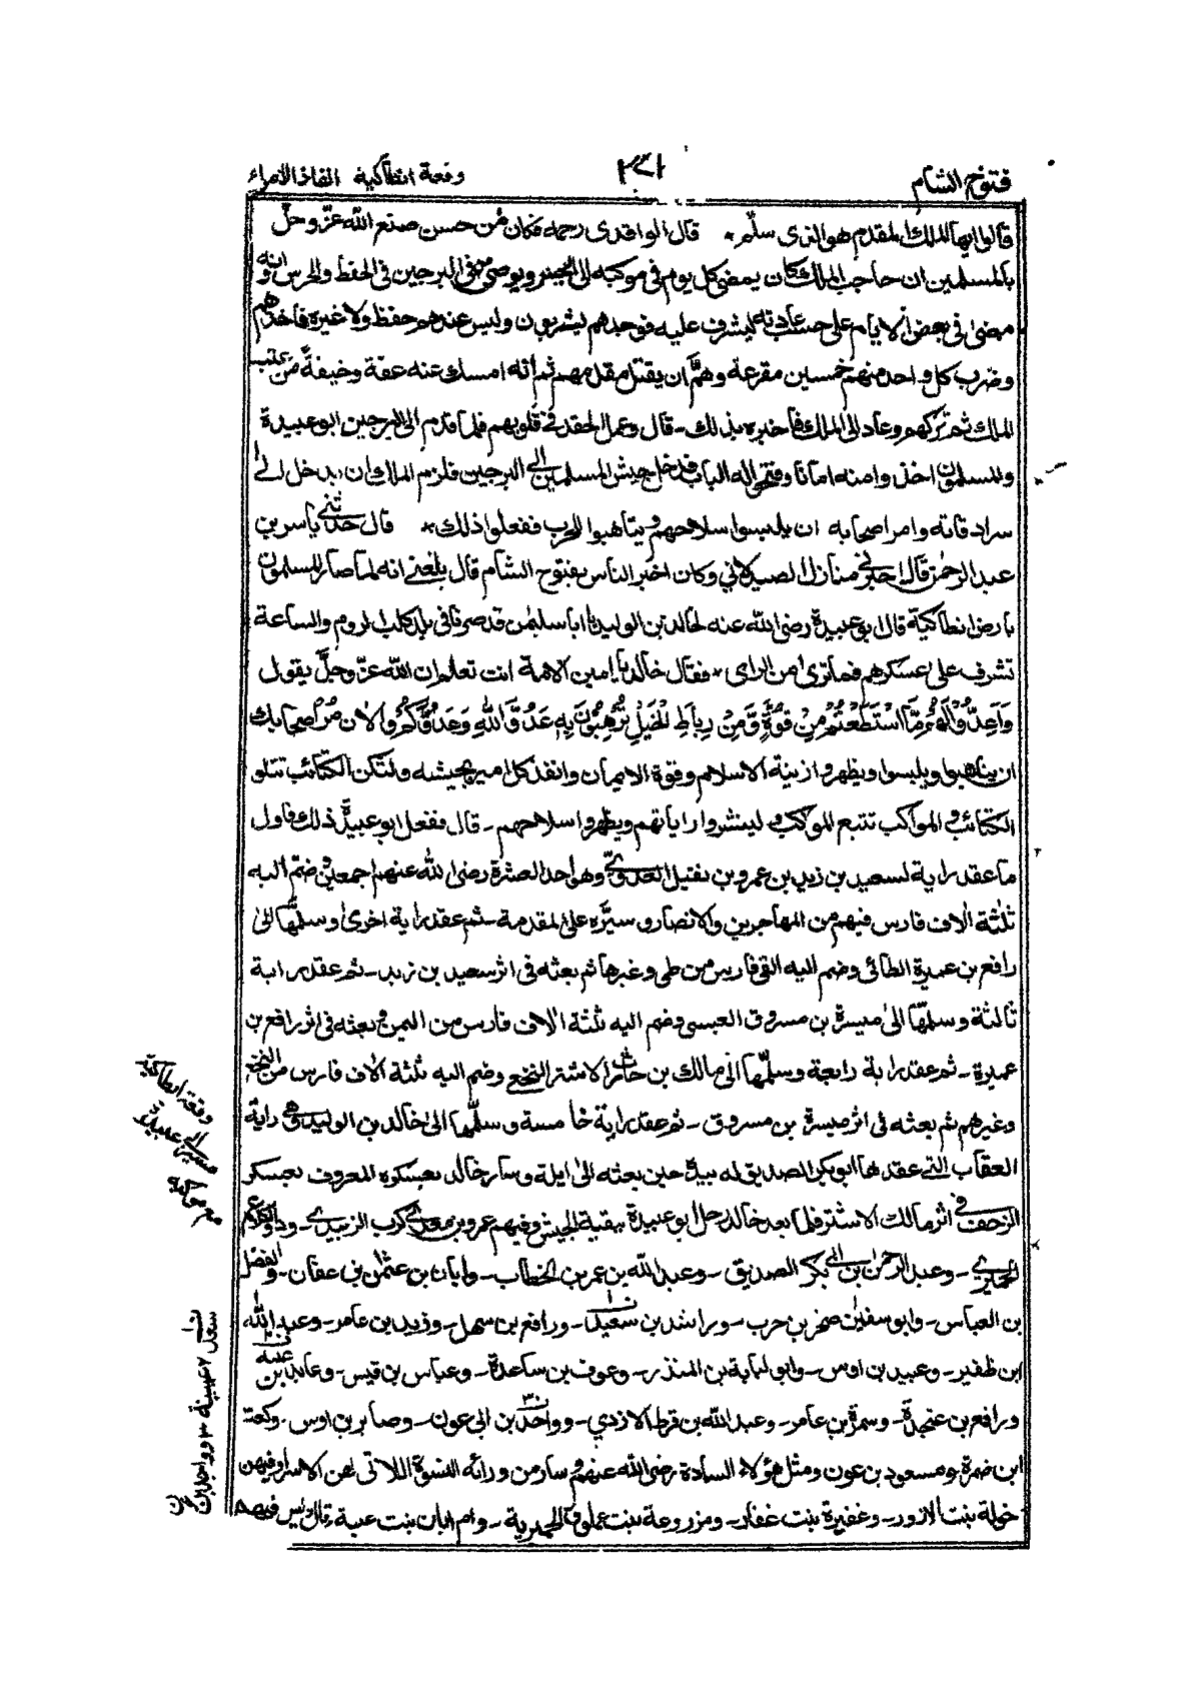 فتوح الشام
وقعة انطاكية انفاذ الامراء
قالوا ايها الملك المقدم هو الذى سلّم * قال الواقدى رحمه فكان من حسن صنع الله عزّ وجلّ
بالمسلمين ان حاجب الملك كان يمضى كل يوم فى موكبه الى الجسر ويوصى من فى البرجين فى الحفظ والحرس وانه
مضى فى بعض الايام على حسب عادته ليشرف عليه فوجدهم يشربون وليس عندهم حفظ ولا غيره فاخذهم
وضرب كل واحد منهم خمسين مقرعة وهمّ ان يقتل مقدمهم ثم انه امسك عنه عفة وخيفةً من عتب
الملك ثم تركهم وعاد الى الملك فاخبره بذلك - قال وعمل الحقد فى قلوبهم فلما قدم الى البرجين ابو عبيدة
والمسلمون اخذوا منه امانا وفتحوا له الباب فدخل جيش المسلمين الى البرجين فلزم الملك ان يدخل الى
سرادقاته وامر اصحابه ان يلبسوا سلاحهم ويتاهبوا للحرب ففعلوا ذلك * قال حدثنى ياسر بن
عبد الرحمٰن قال اخبرنى منازل الصيدلانى وكان اخبر الناس بفتوح الشام قال بلغنى انه لما صار المسلمون
بارض انطاكية قال ابو عبيدة رضى الله عنه لخالد بن الوليد يا ابا سليمٰن قد صرنا فى بلد كلب الروم والساعة
تشرف على عسكرهم فما ترى من الراى * فقال خالد يا امين الامة انت تعلم ان الله عزّ وجلّ يقول
وَاَعِدُّوْا لَهُمْ مَّا اسْتَطَعْتُمْ مِنْ قُوَّةٍ وَّمِنْ رِبَاطِ الْخَيْلِ تُرْهِبُوْنَ بِهٖ عَدُوَّ اللهِ وَعَدُوَّكُمْ والاٰن مُر اصحابك
ان يتاهبوا ويلبسوا ويظهروا زينة الاسلام وقوة الايمان وانفذ كل امير بجيشه ولتكن الكتائب تتلو
الكتائب والمواكب تتبع المواكب ولينشروا راياتهم ويظهروا سلاحهم - قال ففعل ابو عبيدة ذلك فاول
ما عقد راية لسعيد بن زيد بن عمرو بن نفيل العدوى وهو احد العشرة رضى الله عنهم اجمعين وضم اليه
ثلٰثة الاف فارس فيهم من المهاجرين والانصار وسيّره على المقدمة - ثم عقد راية اخرى وسلّمها الى
رافع بن عميرة الطائى وضم اليه الفى فارس من طى وغيرها ثم بعثه فى اثر سعيد بن زيد - ثم عقد راية
ثالثة وسلّمها الى ميسرة بن مسروق العبسى وضم اليه ثلثة الاف فارس من اليمن وبعثه فى اثر رافع بن
عميرة - ثم عقد راية رابعة وسلّمها الى مالك بن حارث الاشتر النخعى وضم اليه ثلثة الاف فارس من النخع
وغيرهم ثم بعثه فى اثر ميسرة بن مسروق - ثم عقد راية خامسة وسلّمها الى خالد بن الوليد وهى راية
العقاب التى عقدها ابو بكر الصديق له بيده حين بعثه الى ايلة وسار خالد بعسكره المعروف بعسكر
الزحف فى اثر مالك الاشتر فلما بعد خالد رحل ابو عبيدة ببقية الجيش وفيهم عمرو بن معدى كرب الزبيدى -
الحميرى - وعبد الرحمٰن ابن ابى بكر الصديق - وعبد الله بن عمر بن الخطاب - وابان بن عثمٰن بن عفان - والفضل
بن العباس - وابو سفيٰن صخر بن حرب - وراشد بن سعيد - ورافع بن سهل - وزيد بن عامر - وعبد الله
ابن ظفير - وعبيد بن اوس - وابو لبابة بن المنذر - وعوف بن ساعدة - وعباس بن قيس - وعابد بن عتبة
ورافع بن عنجدة - وسمرة بن عامر - وعبد الله بن قرط الازدي - وواحد بن ابى عون - وصابر بن اوس -
ابن ضمرة ومسعود بن عون ومثل هؤلاء السادة رضى الله عنهم وسار من ورائه النسوة اللاتى لهن الاسر وفيهن
خولة بنت الازور - وغفيرة بنت غفار - ومزروعة بنت عملوق الحميرية - وام ابان بنت عتبة، قال وليس فيهم
وقعة انطاكية
مسير ابى عبيدة
مع مواكبه